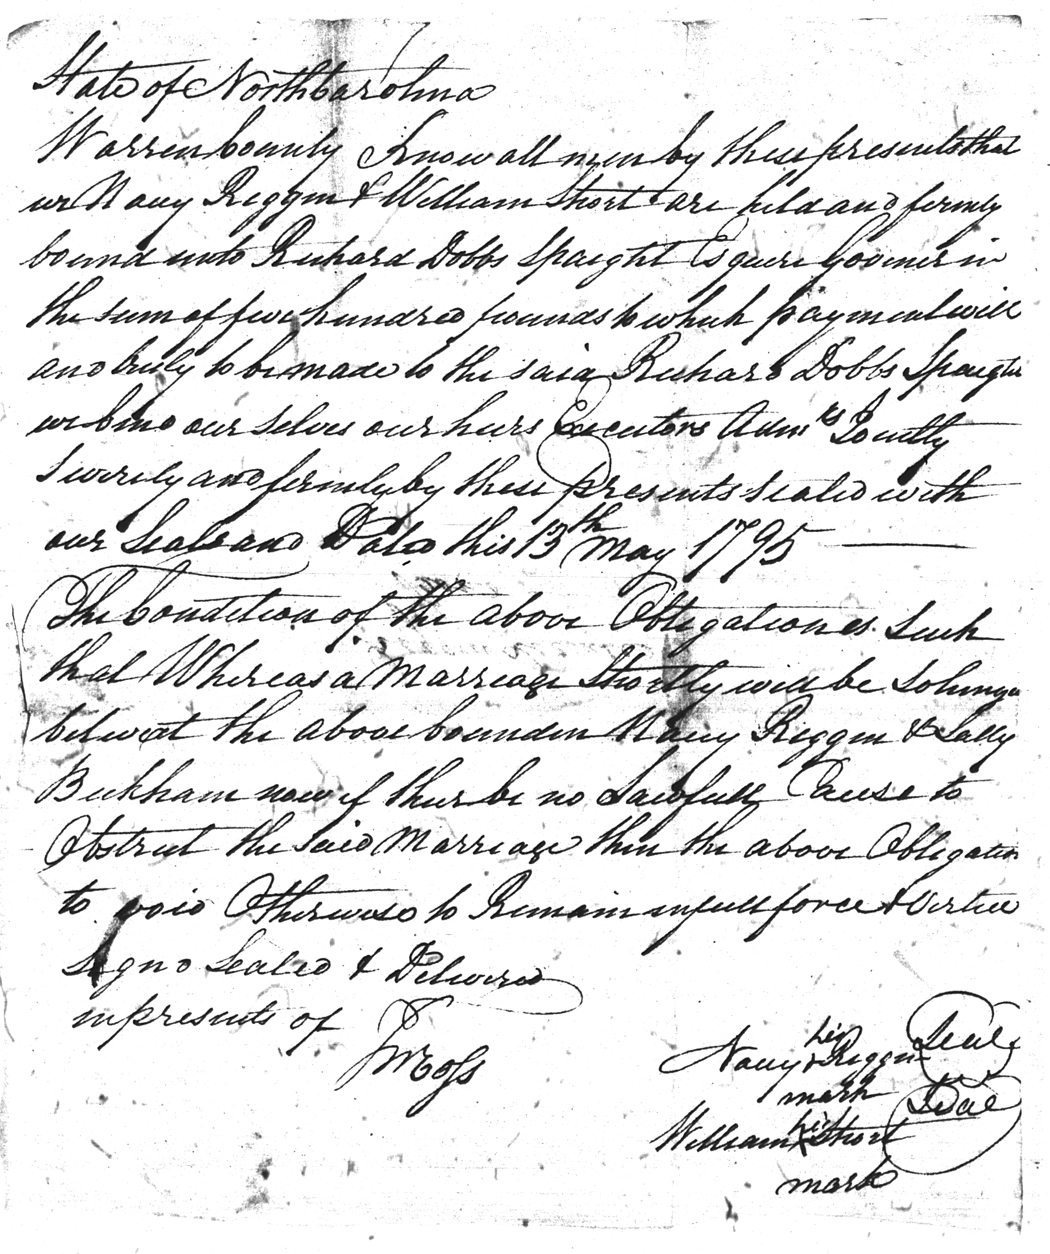 State of North Carolina
Warren County Know all men by these presents that
we Nacy Riggin & William Short are held and firmly
bound unto Richard Dobbs Spaight Esquire Goovner in
the sum of five hundred pounds to which payment will
and truly to be made to the said Richard Dobbs Spaight
we bind our selves our heirs Executors Admrs Jointly
Severily and firmly by these presents sealed with
our Seals and Dated this 13th May 1795
The Condition of the above Obligation is Such
that Whereas a Marriage Shortly will be Solemnga
betwixt the above bounden Nacy Riggin & Sally
Beckham now if their be no Lawfull Cause to
Obstruct the said Marriage then the above Obligation
to void Otherwise to Remain in full force & Virtue
Signd Sealed & Delivered
in presents of
his
Nacy Riggin Seal
mark
his
William X Short Seal
mark